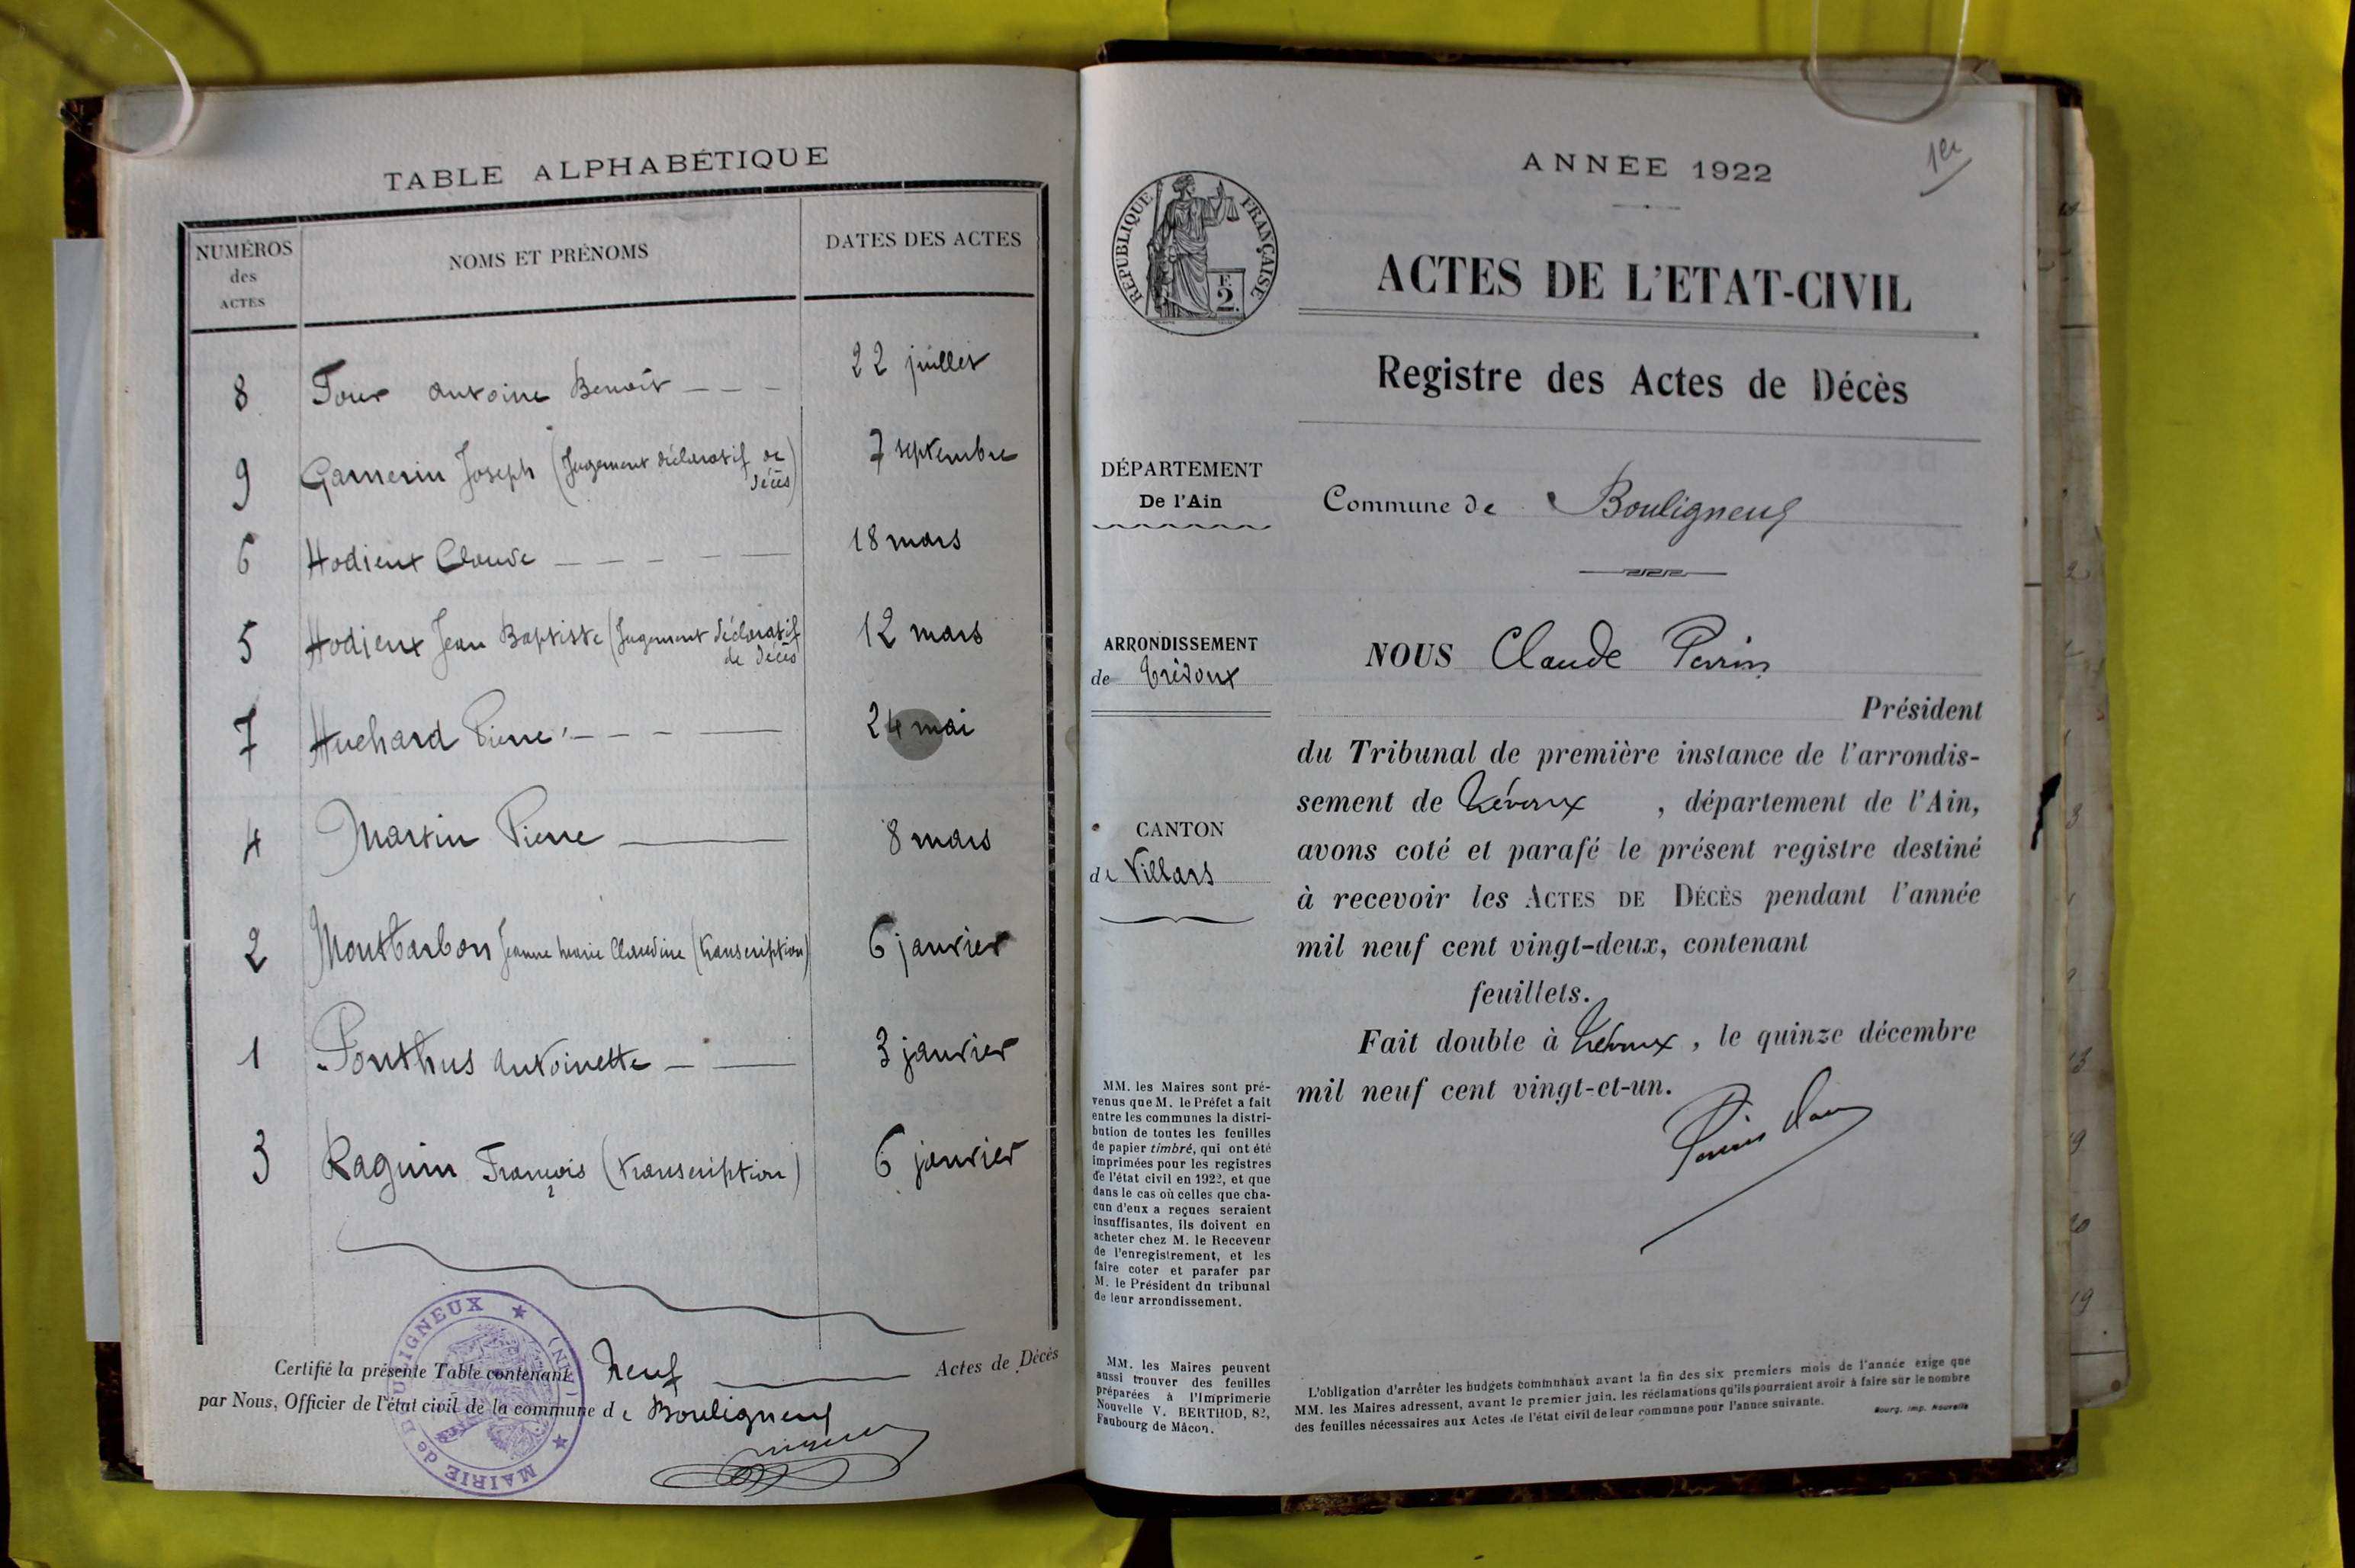 TABLE ALPHABÉTIQUE
NUMÉROS
des
ACTES
NOMS ET PRÉNOMS
DATES DES ACTES
8 Four Antoine Benoît 22 juillet
9 Garnerin Joseph (Jugement déclaratif de
décès) 7 septembre
6 Hodieux Claude 18 mars
5 Hodieux Jean Baptiste (Jugement déclaratif
de décès 12 mars
7 Huchard Pierre 24 mai
4 Martin Pierre 8 mars
2 Montbarbon Jeanne Marie Claudine (transcription) 6 janvier
1 Ponthus Antoinette 3 janvier
3 Raguin François (transcription) 6 janvier
Certifié la présente Table contenant Neuf Actes de Décès
par Nous, Officier de l'état civil de la commune de Bouligneux
MAIRIE de BOULIGNEUX ★ (AIN) ★
1er
ANNÉE 1922
RÉPUBLIQUE FRANÇAISE
F.
2.
ACTES DE L'ETAT-CIVIL
Registre des Actes de Décès
DÉPARTEMENT
De l'Ain
Commune de Bouligneux
ARRONDISSEMENT
de Trévoux
CANTON
de Villars
NOUS Claude Perrin
Président
du Tribunal de première instance de l'arrondis-
sement de Trévoux , département de l'Ain,
avons coté et parafé le présent registre destiné
à recevoir les ACTES DE DÉCÈS pendant l'année
mil neuf cent vingt-deux, contenant
feuillets.
Fait double à Trévoux, le quinze décembre
mil neuf cent vingt-et-un.
MM. les Maires sont pré-
venus que M. le Préfet a fait
entre les communes la distri-
bution de toutes les feuilles
de papier timbré, qui ont été
imprimées pour les registres
de l'état civil en 1922, et que
dans le cas où celles que cha-
cun d'eux a reçues seraient
insuffisantes, ils doivent en
acheter chez M. le Receveur
de l'enregistrement, et les
faire coter et parafer par
M. le Président du tribunal
de leur arrondissement.
MM. les Maires peuvent
aussi trouver des feuilles
préparées à l'Imprimerie
Nouvelle V. BERTHOD, 82,
Faubourg de Mâcon.
L'obligation d'arrêter les budgets communaux avant la fin des six premiers mois de l'année exige que
MM. les Maires adressent, avant le premier juin, les réclamations qu'ils pourraient avoir à faire sur le nombre
des feuilles nécessaires aux Actes de l'état civil de leur commune pour l'année suivante.
Bourg, Imp. Nouvelle